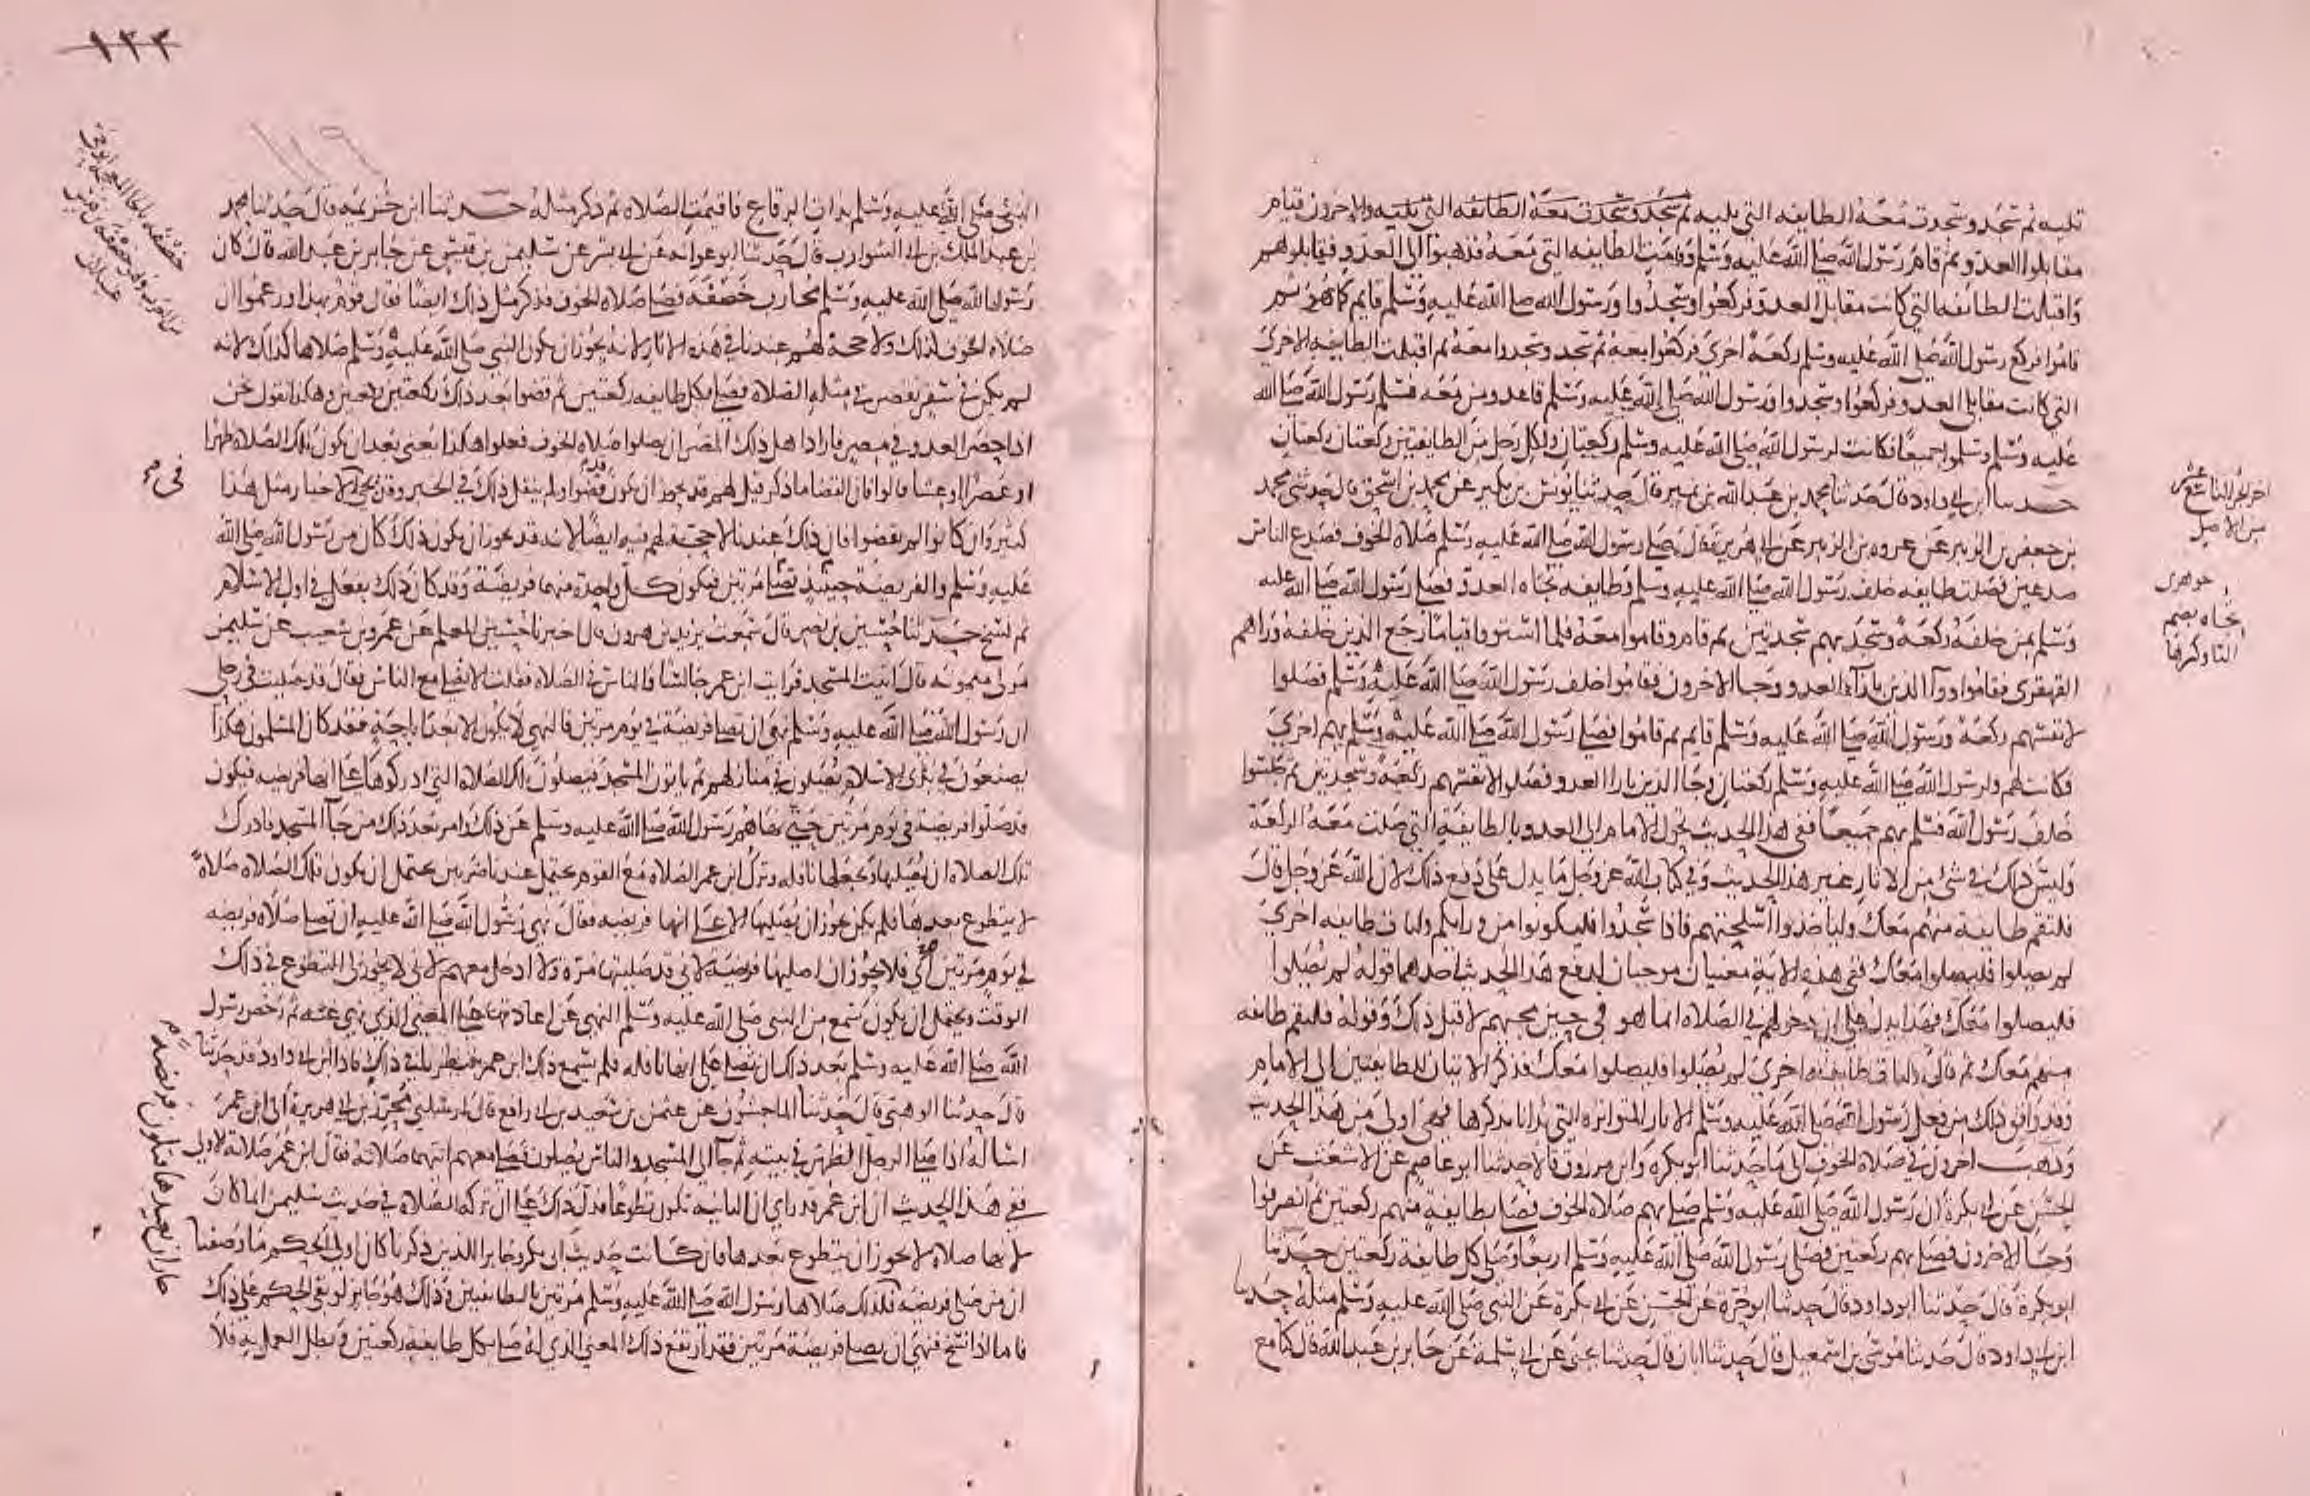 تليه ثم سجد وسجدت معه الطايفه التي يليه ثم سجد وسجدت معه الطايفه التي يليه والاخرون قيام
مقابلوا العدو ثم قام رسول الله صلى الله عليه وسلم وقامت الطايفه التي معه فذهبوا الى العدو فقابلوهم
واقبلت الطايفه التي كانت مقابل العدو فركعوا وسجدوا ورسول الله صلى الله عليه وسلم قايم كما هو ثم
قاموا فركع رسول الله صلى الله عليه وسلم ركعة اخرى فركعوا معه ثم سجد وسجدوا معه ثم اقبلت الطايفه الاخرى
التي كانت مقابل العدو فركعوا وسجدوا ورسول الله صلى الله عليه وسلم قاعد ومن معه فسلم رسول الله صلى الله
عليه وسلم وسلموا جميعا فكانت لرسول الله صلى الله عليه وسلم ركعتان ولكل رجل من الطايفتين ركعتان ركعتان
حدثنا ابن ابي داود قال حدثنا محمد بن عبد الله بن نمير قال حدثنا يونس بن بكير عن محمد بن اسحق قال حدثني محمد
بن جعفر بن الزبير عن عروه بن الزبير عن ابي هريرة قال صلى رسول الله صلى الله عليه وسلم صلاة الخوف فصدع الناس
صدعين فصلت طايفه خلف رسول الله صلى الله عليه وسلم وطايفه تجاه العدو فصلى رسول الله صلى الله عليه
وسلم بمن خلفه ركعة وسجد بهم سجدتين ثم قام وقاموا معه فلما استووا قياما رجع الذين خلفه وراهم
القهقرى فقاموا ورآ الذين بازآء العدو وجا الاخرون فقاموا خلف رسول الله صلى الله عليه وسلم فصلوا
لانفسهم ركعة ورسول الله صلى الله عليه وسلم قايم ثم قاموا فصلى رسول الله صلى الله عليه وسلم بهم اخرى
فكانت لهم ولرسول الله صلى الله عليه وسلم ركعتان وجا الذين بازا العدو فصلوا لانفسهم ركعة وسجدتين ثم جلسوا
خلف رسول الله فسلم بهم جميعا ففي هذا الحديث تحول الامام الى العدو بالطايفة التي صلت معه الركعة
وليس ذلك في شئ من الاثار غير هذا الحديث وفي كتاب الله عز وجل ما يدل على دفع ذلك لان الله عز وجل قال
فلتقم طايفة منهم معك ولياخذوا اسلحتهم فاذا سجدوا فليكونوا من ورايكم ولتات طايفه اخرى
لم يصلوا فليصلوا معك ففي هذه الاية معنيان موجبان لدفع هذا الحديث احدهما قوله لم يصلوا
فليصلوا معك فهذا يدل على ان دخولهم في الصلاة انما هو في حين مجيهم لا قبل ذلك وقوله فلتقم طايفه
منهم معك ثم قال ولتات طايفة اخرى لم يصلوا فليصلوا معك فذكر الاتيان للطايفتين الى الامام
وقد وافق ذلك من فعل رسول الله صلى الله عليه وسلم الاثار المتواتره التي بدانا بذكرها فهي اولى من هذا الحديث
وذهب اخرون في صلاة الخوف الى ما حدثنا ابو بكره وابن مرزوق قالا حدثنا ابو عاصم عن الاشعث عن
الحسن عن ابي بكرة ان رسول الله صلى الله عليه وسلم صلى بهم صلاة الخوف فصلى بطايفة منهم ركعتين ثم انصرفوا
وجا الاخرون فصلى بهم ركعتين فصلى رسول الله صلى الله عليه وسلم اربعا وصلى كل طايفة ركعتين حدثنا
ابو بكرة قال حدثنا ابو داود قال حدثنا ابو حرة عن الحسن عن ابي بكرة عن النبي صلى الله عليه وسلم مثله حدثنا
ابن ابي داود قال حدثنا موسى بن اسمعيل قال حدثنا ابان قال حدثنا يحيى عن ابي سلمة عن جابر بن عبد الله قال كنا مع
اخر الجز التاسع عشر
من الاصل
جوهري
تجاه بضم
التا وكسرها
١٢٢
١١٦
النبي صلى الله عليه وسلم بذات الرقاع فاقيمت الصلاة ثم ذكر مثله حدثنا ابن خزيمه قال حدثنا محمد
بن عبد الملك بن ابي الشوارب قال حدثنا ابو عوانه عن ابي بشر عن سليمن بن قيس عن جابر بن عبد الله قال كان
رسول الله صلى الله عليه وسلم محارب خصفة فصلى صلاة الخوف فذكر مثل ذلك ايضا فقال قوم بهذا وزعموا ان
صلاة الخوف كذلك ولا حجة لهم عندنا في هذه الاثار لانه يجوز ان يكون النبي صلى الله عليه وسلم صلاها كذلك لانه
لم يكن في سفر يقصر في مثله الصلاة فصلى بكل طايفه ركعتين ثم قضوا بعد ذلك ركعتين ركعتين وهكذا نقول نحن
اذا حضر العدو في مصر فاراد اهل ذلك المصر ان يصلوا صلاة الخوف فعلوا هكذا يعني بعد ان يكون تلك الصلاة ظهرا
او عصرا او عشا قالوا فان القضا ما ذكر قيل لهم قد يجوز ان يكون قضوا ولم ينقل ذلك في الخبر وقد يجي في الاخبار مثل هذا
كثير وان كانوا لم يقضوا فان ذلك عندنا لا حجة لهم فيه ايضا لانه قد يجوز ان يكون ذلك كان من رسول الله صلى الله
عليه وسلم والفريضة حينيذ تصلى مرتين فيكون كل واحدة منهما فريضة وقد كان ذلك يفعل في اول الاسلام
ثم نسخ حدثنا حسين بن نصر قال سمعت يزيد بن هرون قال اخبرنا حسين المعلم عن عمرو بن شعيب عن سليمن
مولى ميمونه قال اتيت المسجد فرايت ابن عمر جالسا والناس في الصلاة فقلت الا تصلي مع الناس فقال قد صليت في رحلي
ان رسول الله صلى الله عليه وسلم نهى ان تصلى فريضة في يوم مرتين فالنهي لا يكون الا بعد اباحة فقد كان المسلمون هكذا
يصنعون في بدو الاسلام يصلون في منازلهم ثم ياتون المسجد فيصلون تلك الصلاة التي ادركوها على انها فريضه فيكون
قد صلوا فريضة في يوم مرتين حتى نهاهم رسول الله صلى الله عليه وسلم عن ذلك وامر بعد ذلك من جآ المسجد فادرك
تلك الصلاة ان يصليها ويجعلها نافله وترك ابن عمر الصلاة مع القوم يحتمل عندنا ضربين يحتمل ان يكون تلك الصلاة صلاة
لا يتطوع بعدها فلم يكن يجوز ان يصليها الا على انها فريضه فقال نهى رسول الله صلى الله عليه ان تصلى صلاة فريضه
في يوم مرتين اي فلا يجوز ان اصليها فريضة لاني قد صليتها مرة ولا ادخل معهم لاني لا يجوز لي التطوع في ذلك
الوقت ويحتمل ان يكون سمع من النبي صلى الله عليه وسلم النهي عن اعادتها على المعنى الذي نهى عنه ثم رخص رسول
الله صلى الله عليه وسلم بعد ذلك ان تصلى على انها نافله فلم يسمع ذلك ابن عمر فنظرنا في ذلك فاذا ابن ابي داود قد حدثنا
قال حدثنا الوهبي قال حدثنا الماجشون عن عثمن بن سعيد بن ابي رافع قال ارسلني محرر بن ابي هريرة الى ابن عمر
اساله اذا صلى الرجل الظهر في بيته ثم جآ الى المسجد والناس يصلون فصلى معهم ايتهما صلاته فقال ابن عمر صلاته الاولى
ففي هذا الحديث ان ابن عمر قد راى ان الثانيه تكون تطوعا فدل ذلك على ان تركه الصلاة في حديث سليمن انما كان
لانها صلاة لا يجوز ان يتطوع بعدها فان كانت حديث ابي بكره وجابر اللذين ذكرنا كان اولى الحكم ما وصفنا
ان من صلى فريضة فكذلك صلاها رسول الله صلى الله عليه وسلم مرتين بالطايفتين وذلك هو جايز لو بقي الحكم على ذلك
فاما اذا نسخ فنهي ان يصلى فريضة مرتين فقد ارتفع ذلك المعنى الذي له صلى بكل طايفة ركعتين وبطل العمل به فلا